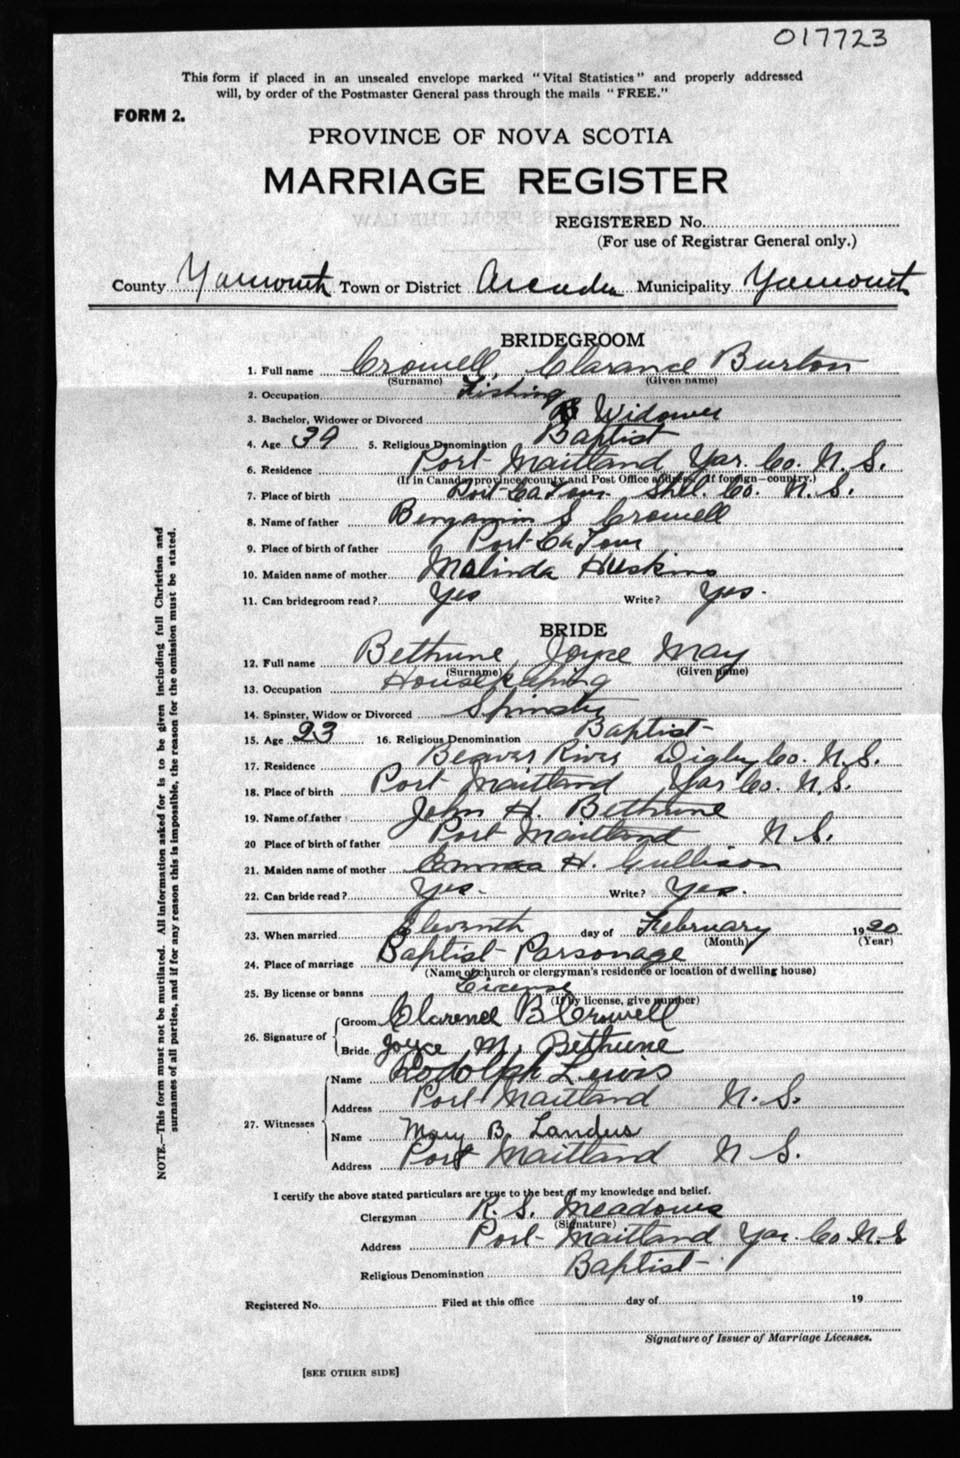 017723
This form if placed in an unsealed envelope marked "Vital Statistics" and properly addressed
will, by order of the Postmaster General pass through the mails "FREE."
FORM 2.
PROVINCE OF NOVA SCOTIA
MARRIAGE REGISTER
REGISTERED No.
(For use of Registrar General only.)
County Yarmouth Town or District Arcadia Municipality Yarmouth
BRIDEGROOM
1. Full name Crowell, Clarance Burton
(Surname) (Given name)
2. Occupation Fishing
3. Bachelor, Widower or Divorced Widower
4. Age 39 5. Religious Denomination Baptist
6. Residence Port Maitland Yar. Co. N. S.
(If in Canada, province, county and Post Office address. If foreign—country.)
7. Place of birth Port La Tour Shel. Co. N. S.
8. Name of father Benjamin S Crowell
9. Place of birth of father Port La Tour
10. Maiden name of mother Malinda Huskins
11. Can bridegroom read? Yes Write? Yes.
BRIDE
12. Full name Bethune Joyce May
(Surname) (Given name)
13. Occupation Housekeeping
14. Spinster, Widow or Divorced Spinster
15. Age 23 16. Religious Denomination Baptist
17. Residence Beaver River Digby Co. N. S.
18. Place of birth Port Maitland Yar Co. N. S.
19. Name of father John H. Bethune
20 Place of birth of father Port Maitland N. S.
21. Maiden name of mother Emma H. Gullison
22. Can bride read? Yes. Write? Yes.
23. When married Eleventh day of February 1920
(Month) (Year)
24. Place of marriage Baptist Parsonage
(Name of church or clergyman's residence or location of dwelling house)
25. By license or banns License
(If by license, give number)
26. Signature of Groom Clarence B Crowell
Bride Joyce M. Bethune
27. Witnesses Name Rodolph Lewis
Address Port Maitland N. S.
Name Mary B. Landers
Address Port Maitland N S.
I certify the above stated particulars are true to the best of my knowledge and belief.
Clergyman R. S. Meadows
(Signature)
Address Port Maitland Yar. Co. N. S
Religious Denomination Baptist
Registered No. Filed at this office day of 19
Signature of Issuer of Marriage Licenses.
[SEE OTHER SIDE]
NOTE.—This form must not be mutilated. All information asked for is to be given including full Christian and
surnames of all parties, and if for any reason this is impossible, the reason for the omission must be stated.